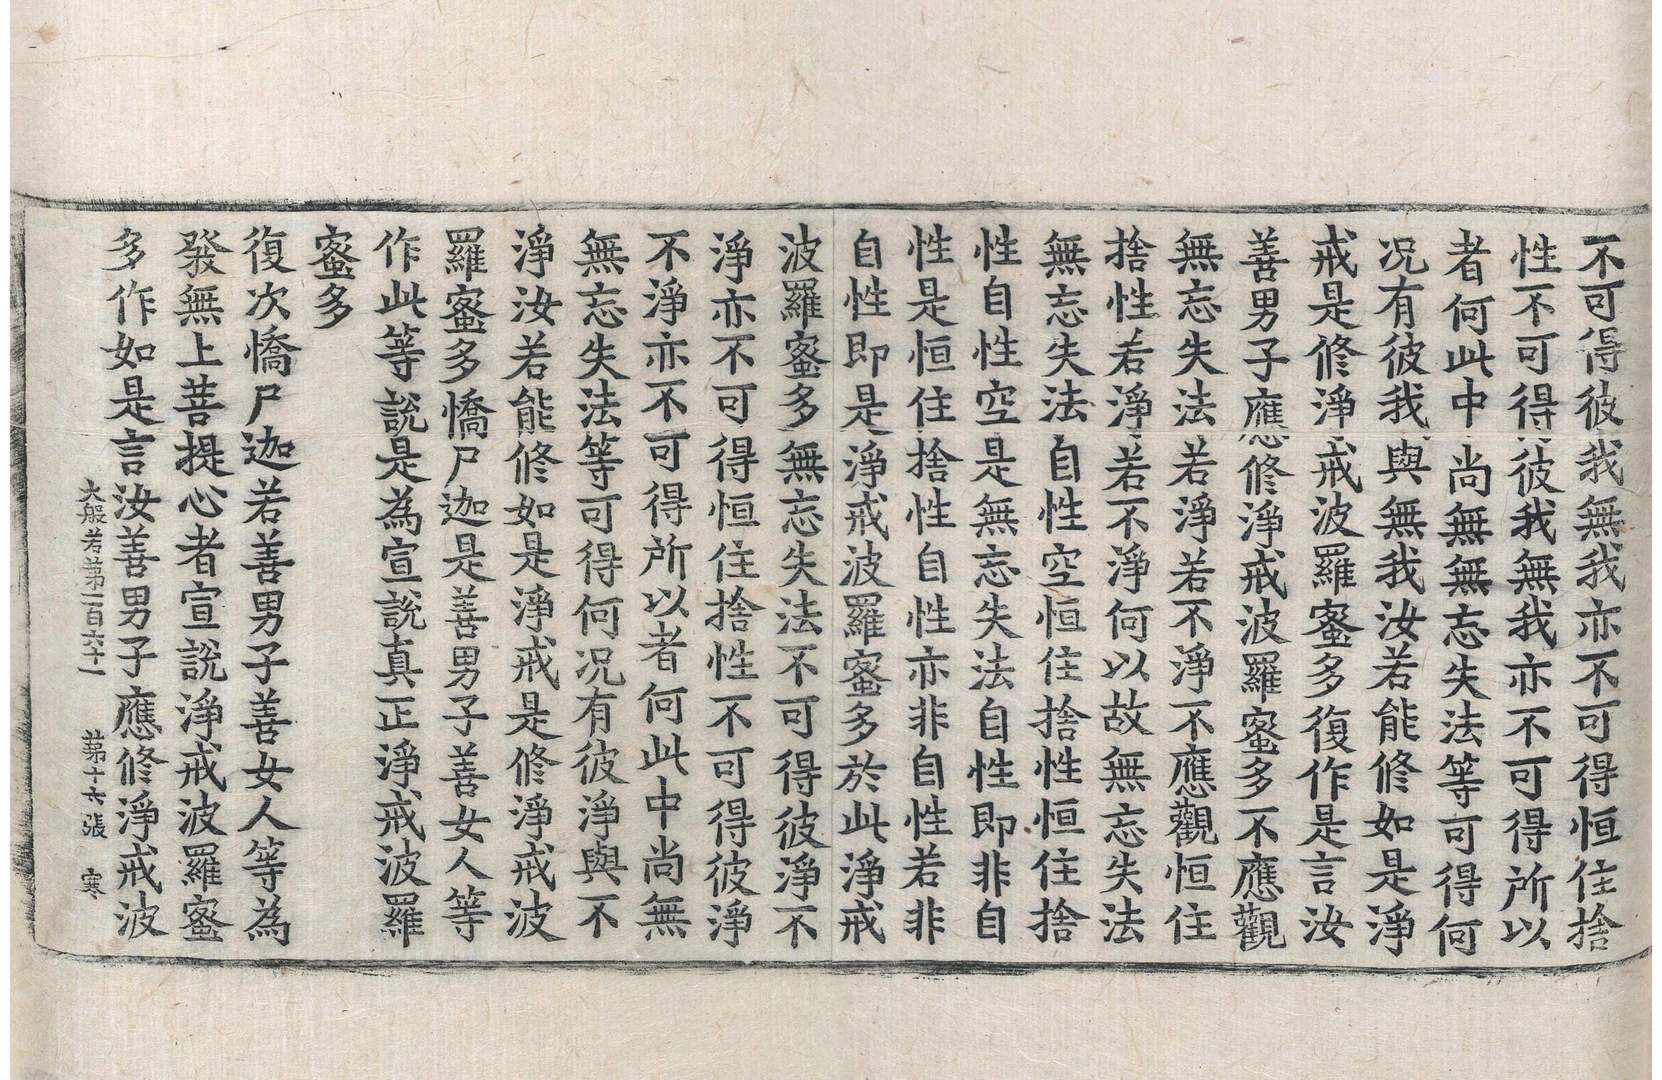 不可得彼我無我亦不可得恒住捨
性不可得彼我無我亦不可得所以
者何此中尚無無忘失法等可得何
况有彼我與無我汝若能修如是淨
戒是修淨戒波羅蜜多復作是言汝
善男子應修淨戒波羅蜜多不應觀
無忘失法若淨若不淨不應觀恒住
捨性若淨若不淨何以故無忘失法
無忘失法自性空恒住捨性恒住捨
性自性空是無忘失法自性即非自
性是恒住捨性自性亦非自性若非
自性即是淨戒波羅蜜多於此淨戒
波羅蜜多無忘失法不可得彼淨不
淨亦不可得恒住捨性不可得彼淨
不淨亦不可得所以者何此中尚無
無忘失法等可得何况有彼淨與不
淨汝若能修如是淨戒是修淨戒波
羅蜜多憍尸迦是善男子善女人等
作此等說是為宣說真正淨戒波羅
蜜多
復次憍尸迦若善男子善女人等為
發無上菩提心者宣說淨戒波羅蜜
多作如是言汝善男子應修淨戒波
大般若第一百六十一 第十六張 寒